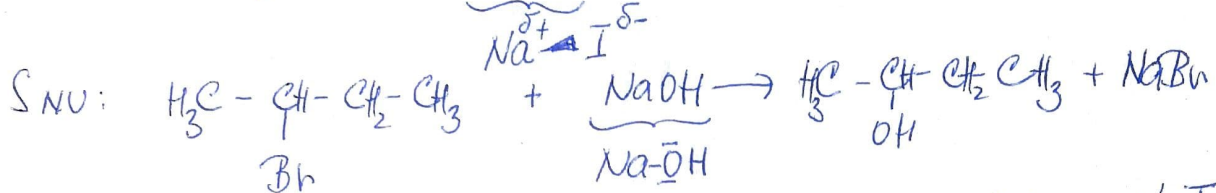 Na^δ+ ◄ I^δ-
SNU: H₃C - CH - CH₂ - CH₃ + NaOH → H₃C - CH - CH₂ CH₃ + NaBr
Br Na-OH OH